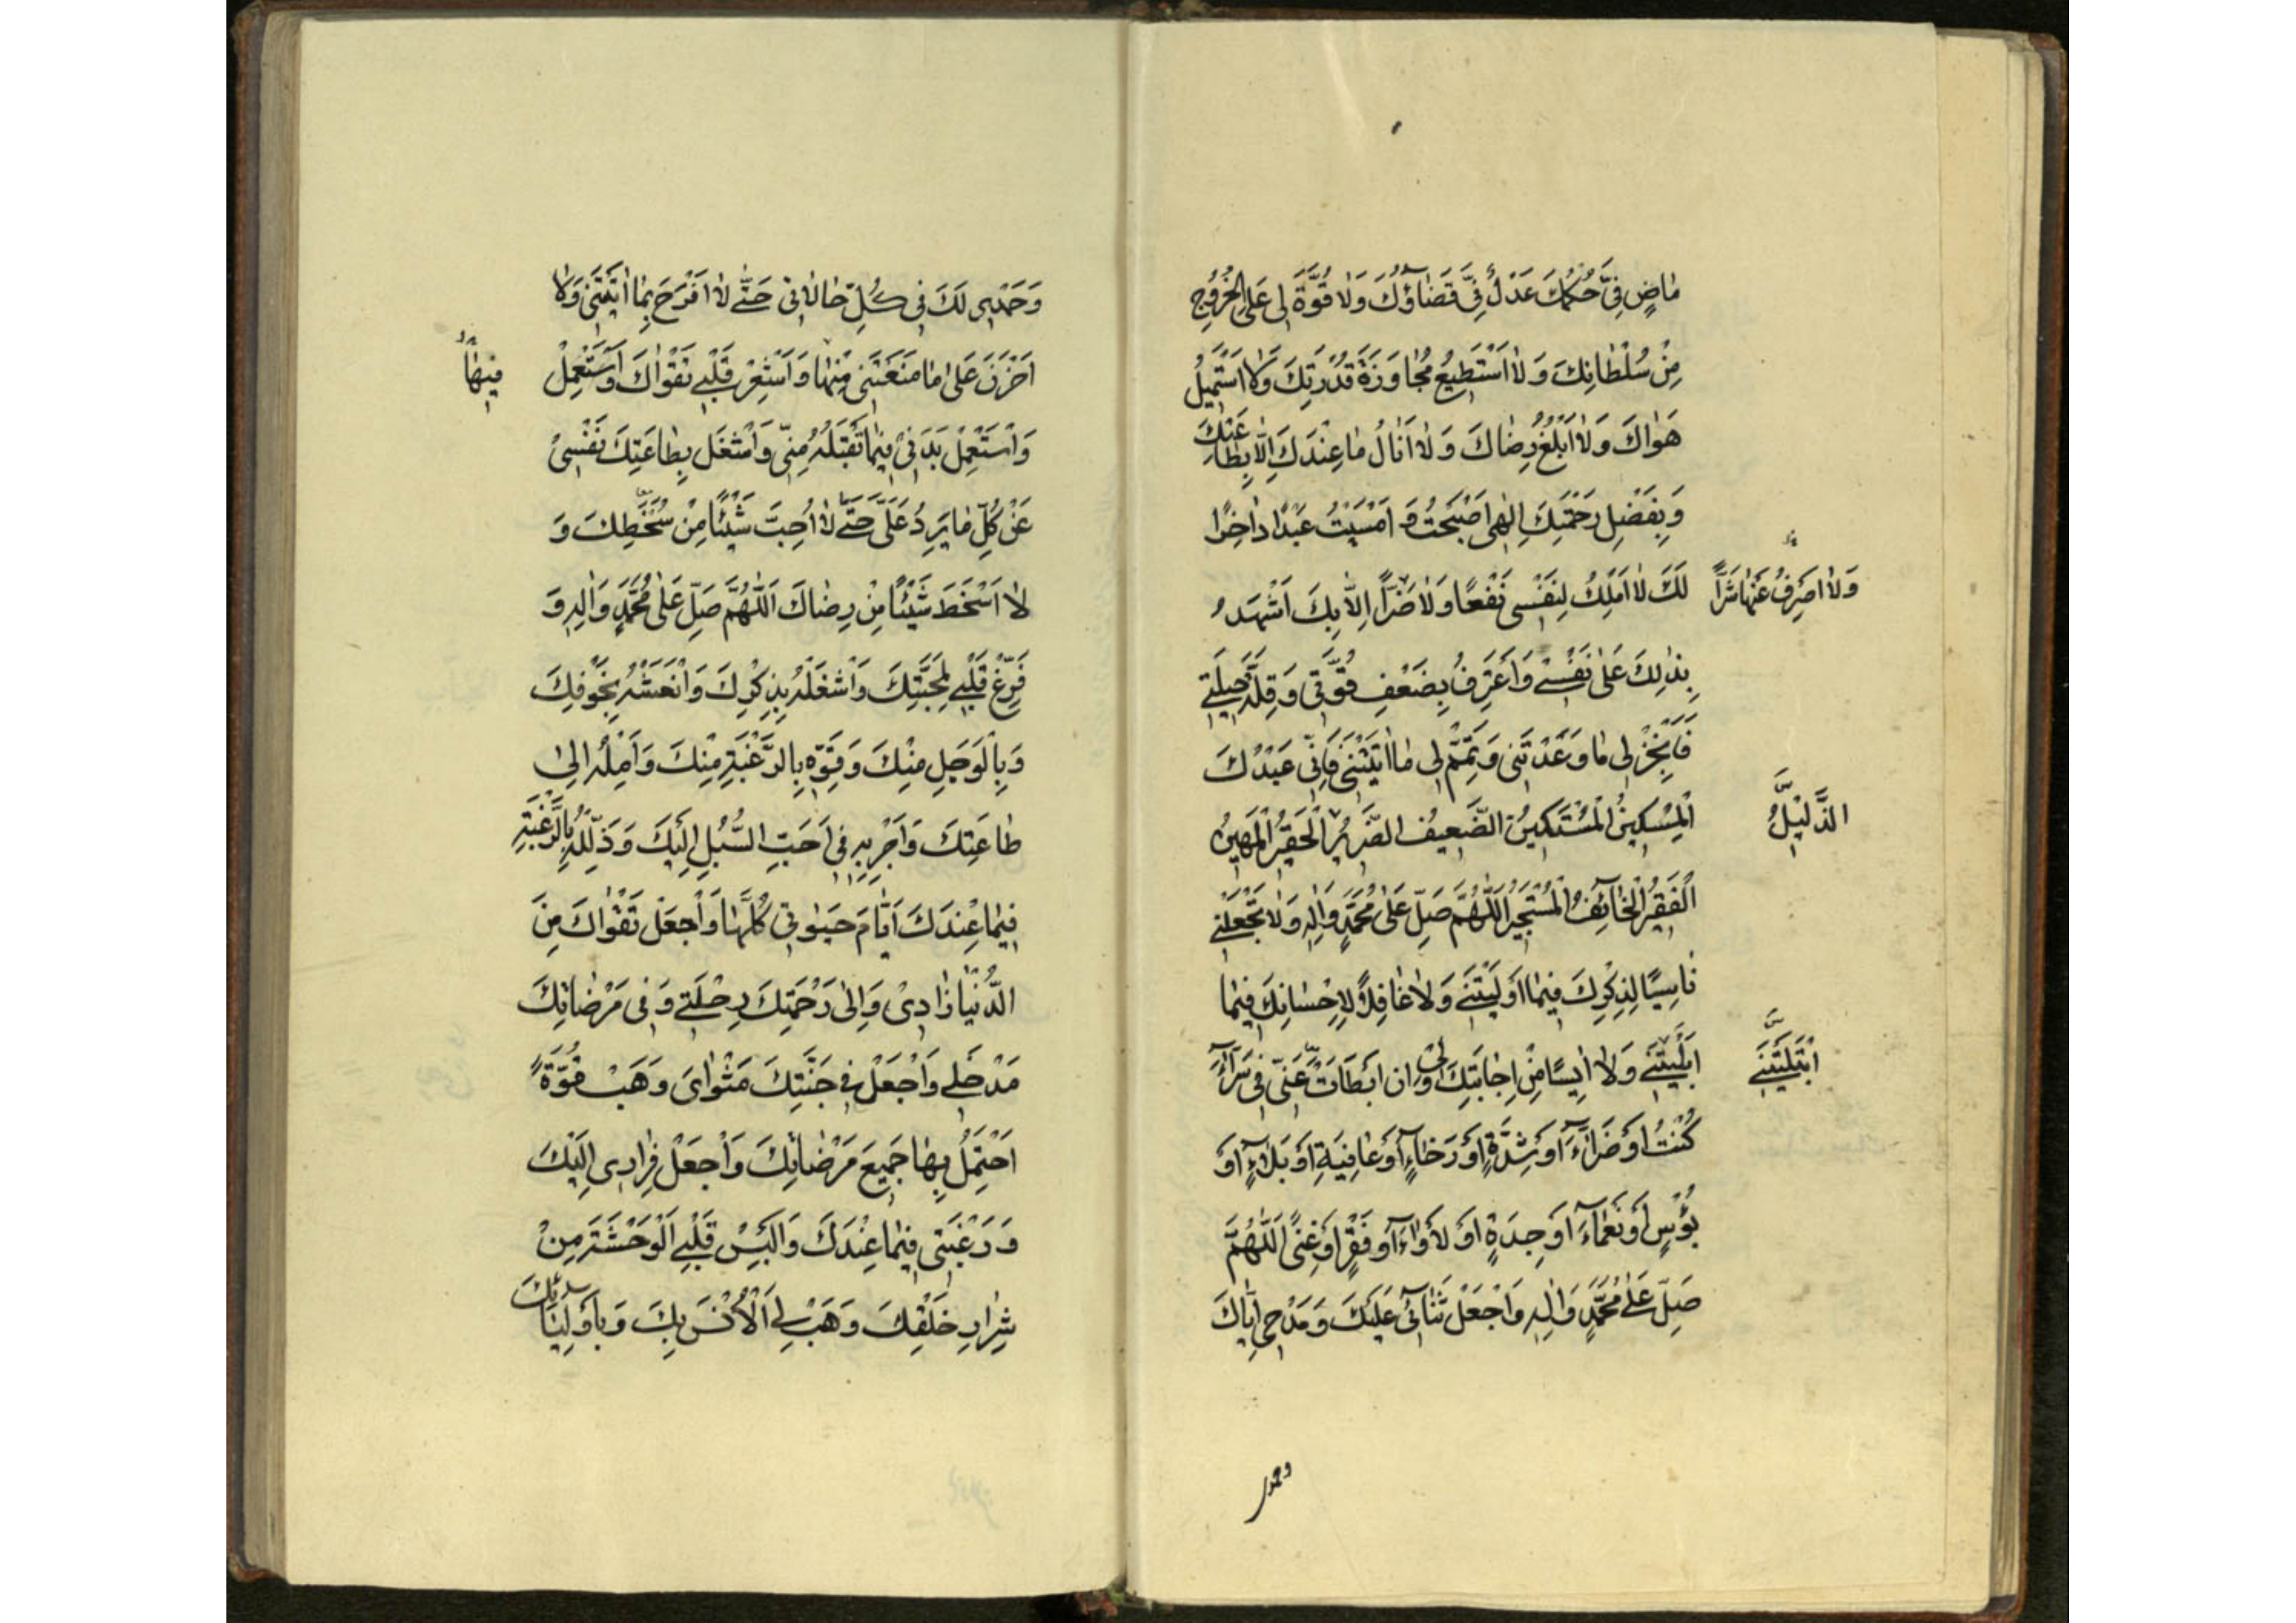 مٰاضٍ فِيَّ حُكْمُكَ عَدْلٌ فِيَّ قَضٰاؤُكَ وَلٰا قُوَّةَ لِي عَلَى الْخُرُوجِ
مِنْ سُلْطٰانِكَ وَلٰا اَسْتَطِيعُ مُجٰاوَزَةَ قُدْرَتِكَ وَلٰا اَسْتَمِيلُ
هَوٰاكَ وَلٰا اَبْلُغُ رِضٰاكَ وَلٰا اَنٰالُ مٰا عِنْدَكَ اِلّٰا بِطٰاعَتِكَ
وَبِفَضْلِ رَحْمَتِكَ اِلٰهِي اَصْبَحْتُ وَ اَمْسَيْتُ عَبْدًا دٰاخِرًا
لَكَ لٰا اَمْلِكُ لِنَفْسِي نَفْعًا وَلٰا ضَرًّا اِلّٰا بِكَ اَشْهَدُ
وَلٰا اَصْرِفُ عَنْهٰا شَرًّا
بِذٰلِكَ عَلٰى نَفْسِي وَاَعْتَرِفُ بِضَعْفِ قُوَّتِي وَقِلَّةِ حِيلَتِي
فَاَنْجِزْ لِي مٰا وَعَدْتَنِي وَتَمِّمْ لِي مٰا اٰتَيْتَنِي فَاِنِّي عَبْدُكَ
الْمِسْكِينُ الْمُسْتَكِينُ الضَّعِيفُ الضَّرِيرُ الْحَقِيرُ الْمَهِينُ
الذَّلِيلُ
الْفَقِيرُ الْخٰائِفُ الْمُسْتَجِيرُ اَللّٰهُمَّ صَلِّ عَلٰى مُحَمَّدٍ وَاٰلِهِ وَلٰا تَجْعَلْنِي
نٰاسِيًا لِذِكْرِكَ فِيمٰا اَوْلَيْتَنِي وَلٰا غٰافِلًا لِاِحْسٰانِكَ فِيمٰا
اَبْلَيْتَنِي وَلٰا اٰيِسًا مِنْ اِجٰابَتِكَ لِي وَاِنْ اَبْطَاَتْ عَنِّي فِي سَرّٰاءَ
ابْتَلَيْتَنِي
كُنْتُ اَوْ ضَرّٰاءَ اَوْ شِدَّةٍ اَوْ رَخٰاءٍ اَوْ عٰافِيَةٍ اَوْ بَلٰاءٍ اَوْ
بُؤْسٍ اَوْ نَعْمٰاءَ اَوْ جِدَةٍ اَوْ لَأْوٰاءَ اَوْ فَقْرٍ اَوْ غِنًى اَللّٰهُمَّ
صَلِّ عَلٰى مُحَمَّدٍ وَاٰلِهِ وَاجْعَلْ ثَنٰائِي عَلَيْكَ وَمَدْحِي اِيّٰاكَ
وحمدی
وَحَمْدِي لَكَ فِي كُلِّ حٰالٰاتِي حَتّٰى لٰا اَفْرَحَ بِمٰا اٰتَيْتَنِي وَلٰا
اَحْزَنَ عَلٰى مٰا مَنَعْتَنِي مِنْهٰا وَاَشْعِرْ قَلْبِي تَقْوٰاكَ وَاسْتَعْمِلْ
فِيهٰا
وَاسْتَعْمِلْ بَدَنِي فِيمٰا تَقْبَلُهُ مِنِّي وَاشْغَلْ بِطٰاعَتِكَ نَفْسِي
عَنْ كُلِّ مٰا يَرِدُ عَلَيَّ حَتّٰى لٰا اُحِبَّ شَيْئًا مِنْ سُخْطِكَ وَ
لٰا اَسْخَطَ شَيْئًا مِنْ رِضٰاكَ اَللّٰهُمَّ صَلِّ عَلٰى مُحَمَّدٍ وَاٰلِهِ وَ
فَرِّغْ قَلْبِي لِمَحَبَّتِكَ وَاشْغَلْهُ بِذِكْرِكَ وَانْعَشْهُ بِخَوْفِكَ
وَبِالْوَجَلِ مِنْكَ وَقَوِّهِ بِالرَّغْبَةِ مِنْكَ وَاَمِلْهُ اِلٰى
طٰاعَتِكَ وَاَجْرِ بِهِ فِي اَحَبِّ السُّبُلِ اِلَيْكَ وَذَلِّلْهُ بِالرَّغْبَةِ
فِيمٰا عِنْدَكَ اَيّٰامَ حَيٰوتِي كُلِّهٰا وَاجْعَلْ تَقْوٰاكَ مِنَ
الدُّنْيٰا زٰادِي وَاِلٰى رَحْمَتِكَ رِحْلَتِي وَفِي مَرْضٰاتِكَ
مَدْخَلِي وَاجْعَلْ فِي جَنَّتِكَ مَثْوٰايَ وَهَبْ قُوَّةً
اَحْتَمِلُ بِهٰا جَمِيعَ مَرْضٰاتِكَ وَاجْعَلْ فِرٰارِي اِلَيْكَ
وَرَغْبَتِي فِيمٰا عِنْدَكَ وَاَلْبِسْ قَلْبِي الْوَحْشَةَ مِنْ
شِرٰارِ خَلْقِكَ وَهَبْ لِي الْاُنْسَ بِكَ وَبِاَوْلِيٰائِكَ